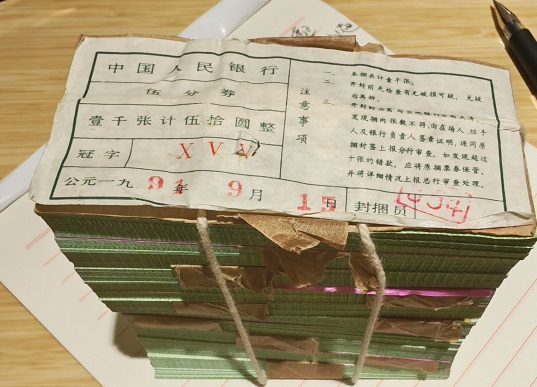 中国人民银行
伍分券
壹千张计伍拾圆整
冠字 X V
公元一九91年9月15日 封捆员
注意事项
一、本捆共计壹千张。
二、开封前先检查有无破损可疑，无疑
后再拆。
发现捆内张数不符,由在场人、经手
人及银行负责人签章证明，连同原
捆封签上报分行审查。如发现超过
十张的错款，应将原捆票券保管，
并将详细情况上报总行审查处理。